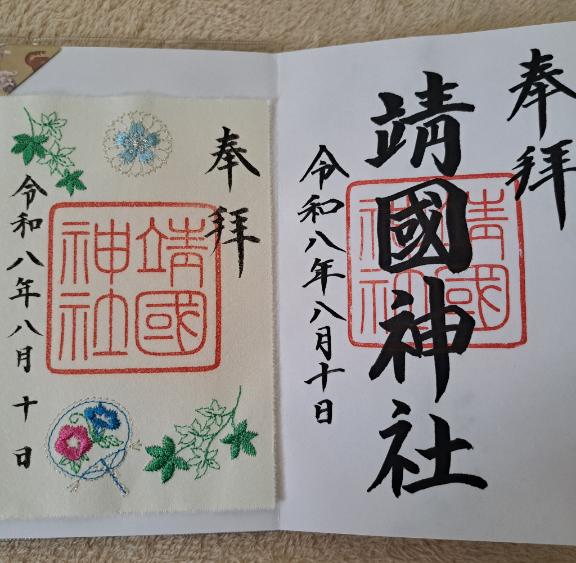 奉拝
靖國神社
靖國神社
令和八年八月十日
奉拝
靖國神社
令和八年八月十日